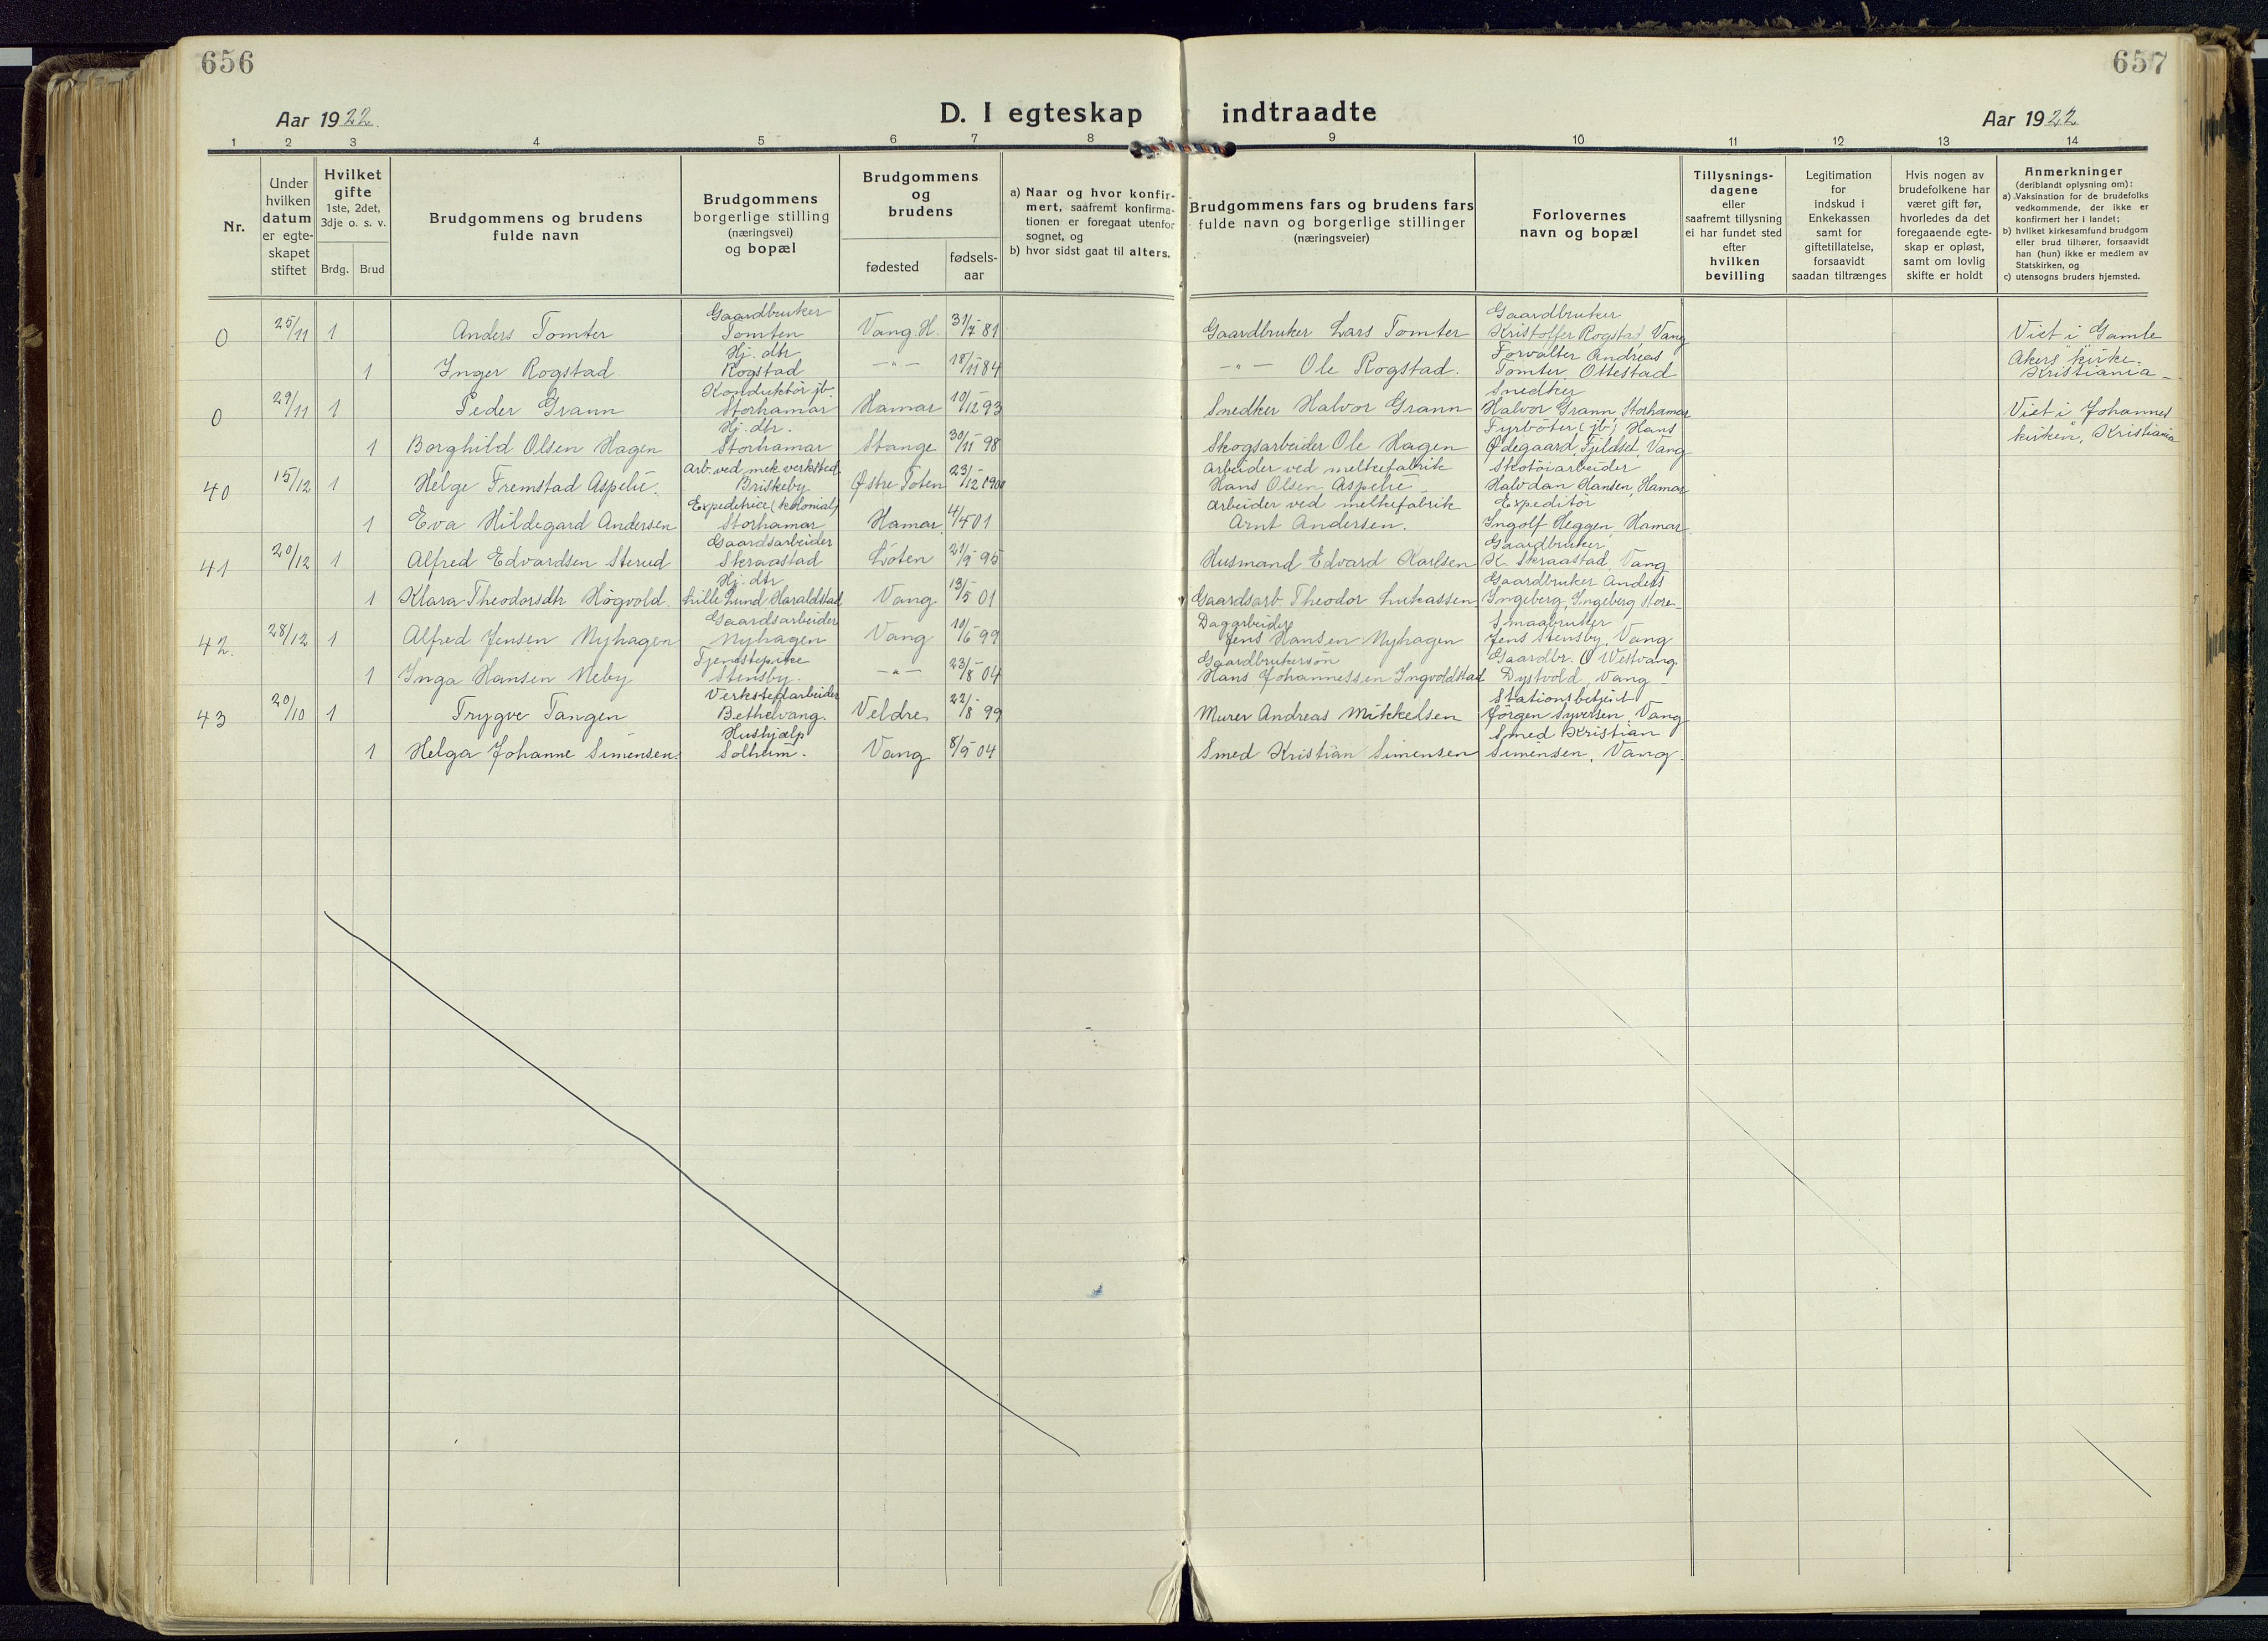 656
657
Aar 1922.
D. I egteskap indtraadte
Aar 1922
1 2 3 4 5 6 7 8 9 10 11 12 13 14
Nr.
Under
hvilken
datum
er egte-
skapet
stiftet
Hvilket
gifte
1ste, 2det,
3dje o. s. v.
Brdg. Brud
Brudgommens og brudens
fulde navn
Brudgommens
borgerlige stilling
(næringsvei)
og bopæl
Brudgommens
og
brudens
fødested
fødsels-
aar
a) Naar og hvor konfir-
mert, saafremt konfirma-
tionen er foregaat utenfor
sognet, og
b) hvor sidst gaat til alters.
Brudgommens fars og brudens fars
fulde navn og borgerlige stillinger
(næringsveier)
Forlovernes
navn og bopæl
Tillysnings-
dagene
eller
saafremt tillysning
ei har fundet sted
efter
hvilken
bevilling
Legitimation
for
indskud i
Enkekassen
samt for
giftetillatelse,
forsaavidt
saadan tiltrænges
Hvis nogen av
brudefolkene har
været gift før,
hvorledes da det
foregaaende egte-
skap er opløst,
samt om lovlig
skifte er holdt
Anmerkninger
(deriblandt oplysning om):
a) Vaksination for de brudefolks
vedkommende, der ikke er
konfirmert her i landet;
b) hvilket kirkesamfund brudgom
eller brud tilhører, forsaavidt
han (hun) ikke er medlem av
Statskirken, og
c) utensogns bruders hjemsted.
Gaardbruker Gaardbruker
0 25/11 1 Anders Tomter Tomten Vang. H. 31/7 81 Gaardbruker Lars Tomter Kristoffer Rogstad, Vang Viet i Gamle
Hj. dtr Forvalter Andreas Akers kirke.
1 Inger Rogstad Rogstad -"- 18/11 84 -"- Ole Rogstad. Tomter Ottestad Kristiania -
Konduktör jb. Snedker
0 29/11 1 Peder Grann Storhamar Hamar 10/12 93 Snedker Halvor Grann Halvor Grann, Storhamar Viet i Johannes
Hj. dtr. Fyrböter (jb) Hans
1 Borghild Olsen Hagen Storhamar Stange 30/11 98 Skogsarbeider Ole Hagen Ødegaard, Fjeldset, Vang kirken, Kristiania
Arb. ved mek. verksted. Arbeider ved melkefabrik Skotöiarbeider
40 15/12 1 Helge Fremstad Aspelie. Briskeby Østre Toten 23/12 1900 Hans Olsen Aspelie Halvdan Hansen, Hamar
Expeditrice (kolonial) Arbeider ved melkefabrik Expeditör
1 Eva Hildegard Andersen Storhamar Hamar 4/4 01 Arnt Andersen. Ingolf Heggen, Hamar
Gaardsarbeider Gaardbruker
41 20/12 1 Alfred Edvardsen Sterud Skraastad Löten 21/9 95 Husmand Edvard Karlsen K. Skraastad, Vang
Hj. dtr Gaardbruker Anders
1 Klara Theodorsdtr Högvold. Lille Lund Haraldstad Vang 13/5 01 Gaardsarb. Theodor Lukassen Ingeberg, Ingeberg store-
Gaardsarbeider Dagarbeider Smaabruker
42. 28/12 1 Alfred Jensen Nyhagen Nyhagen Vang 10/6 99 Jens Hansen Nyhagen Jens Stensby, Vang
Tjenestepike Gaardbrukersön Gaardbr. O Westvang
1 Inga Hansen Neby Stensby. -"- 23/8 04 Hans Johannessen Ingvoldstad Dystvold, Vang -
Verkstedarbeider Stationsbetjent
43 20/10 1 Trygve Tangen Bethelvang. Veldre 22/8 99 Murer Andreas Mikkelsen Jörgen Syversen, Vang
Hushjælp Smed Kristian
1 Helga Johanne Simensen. Solheim. Vang 8/9 04 Smed Kristian Simensen Simensen, Vang.